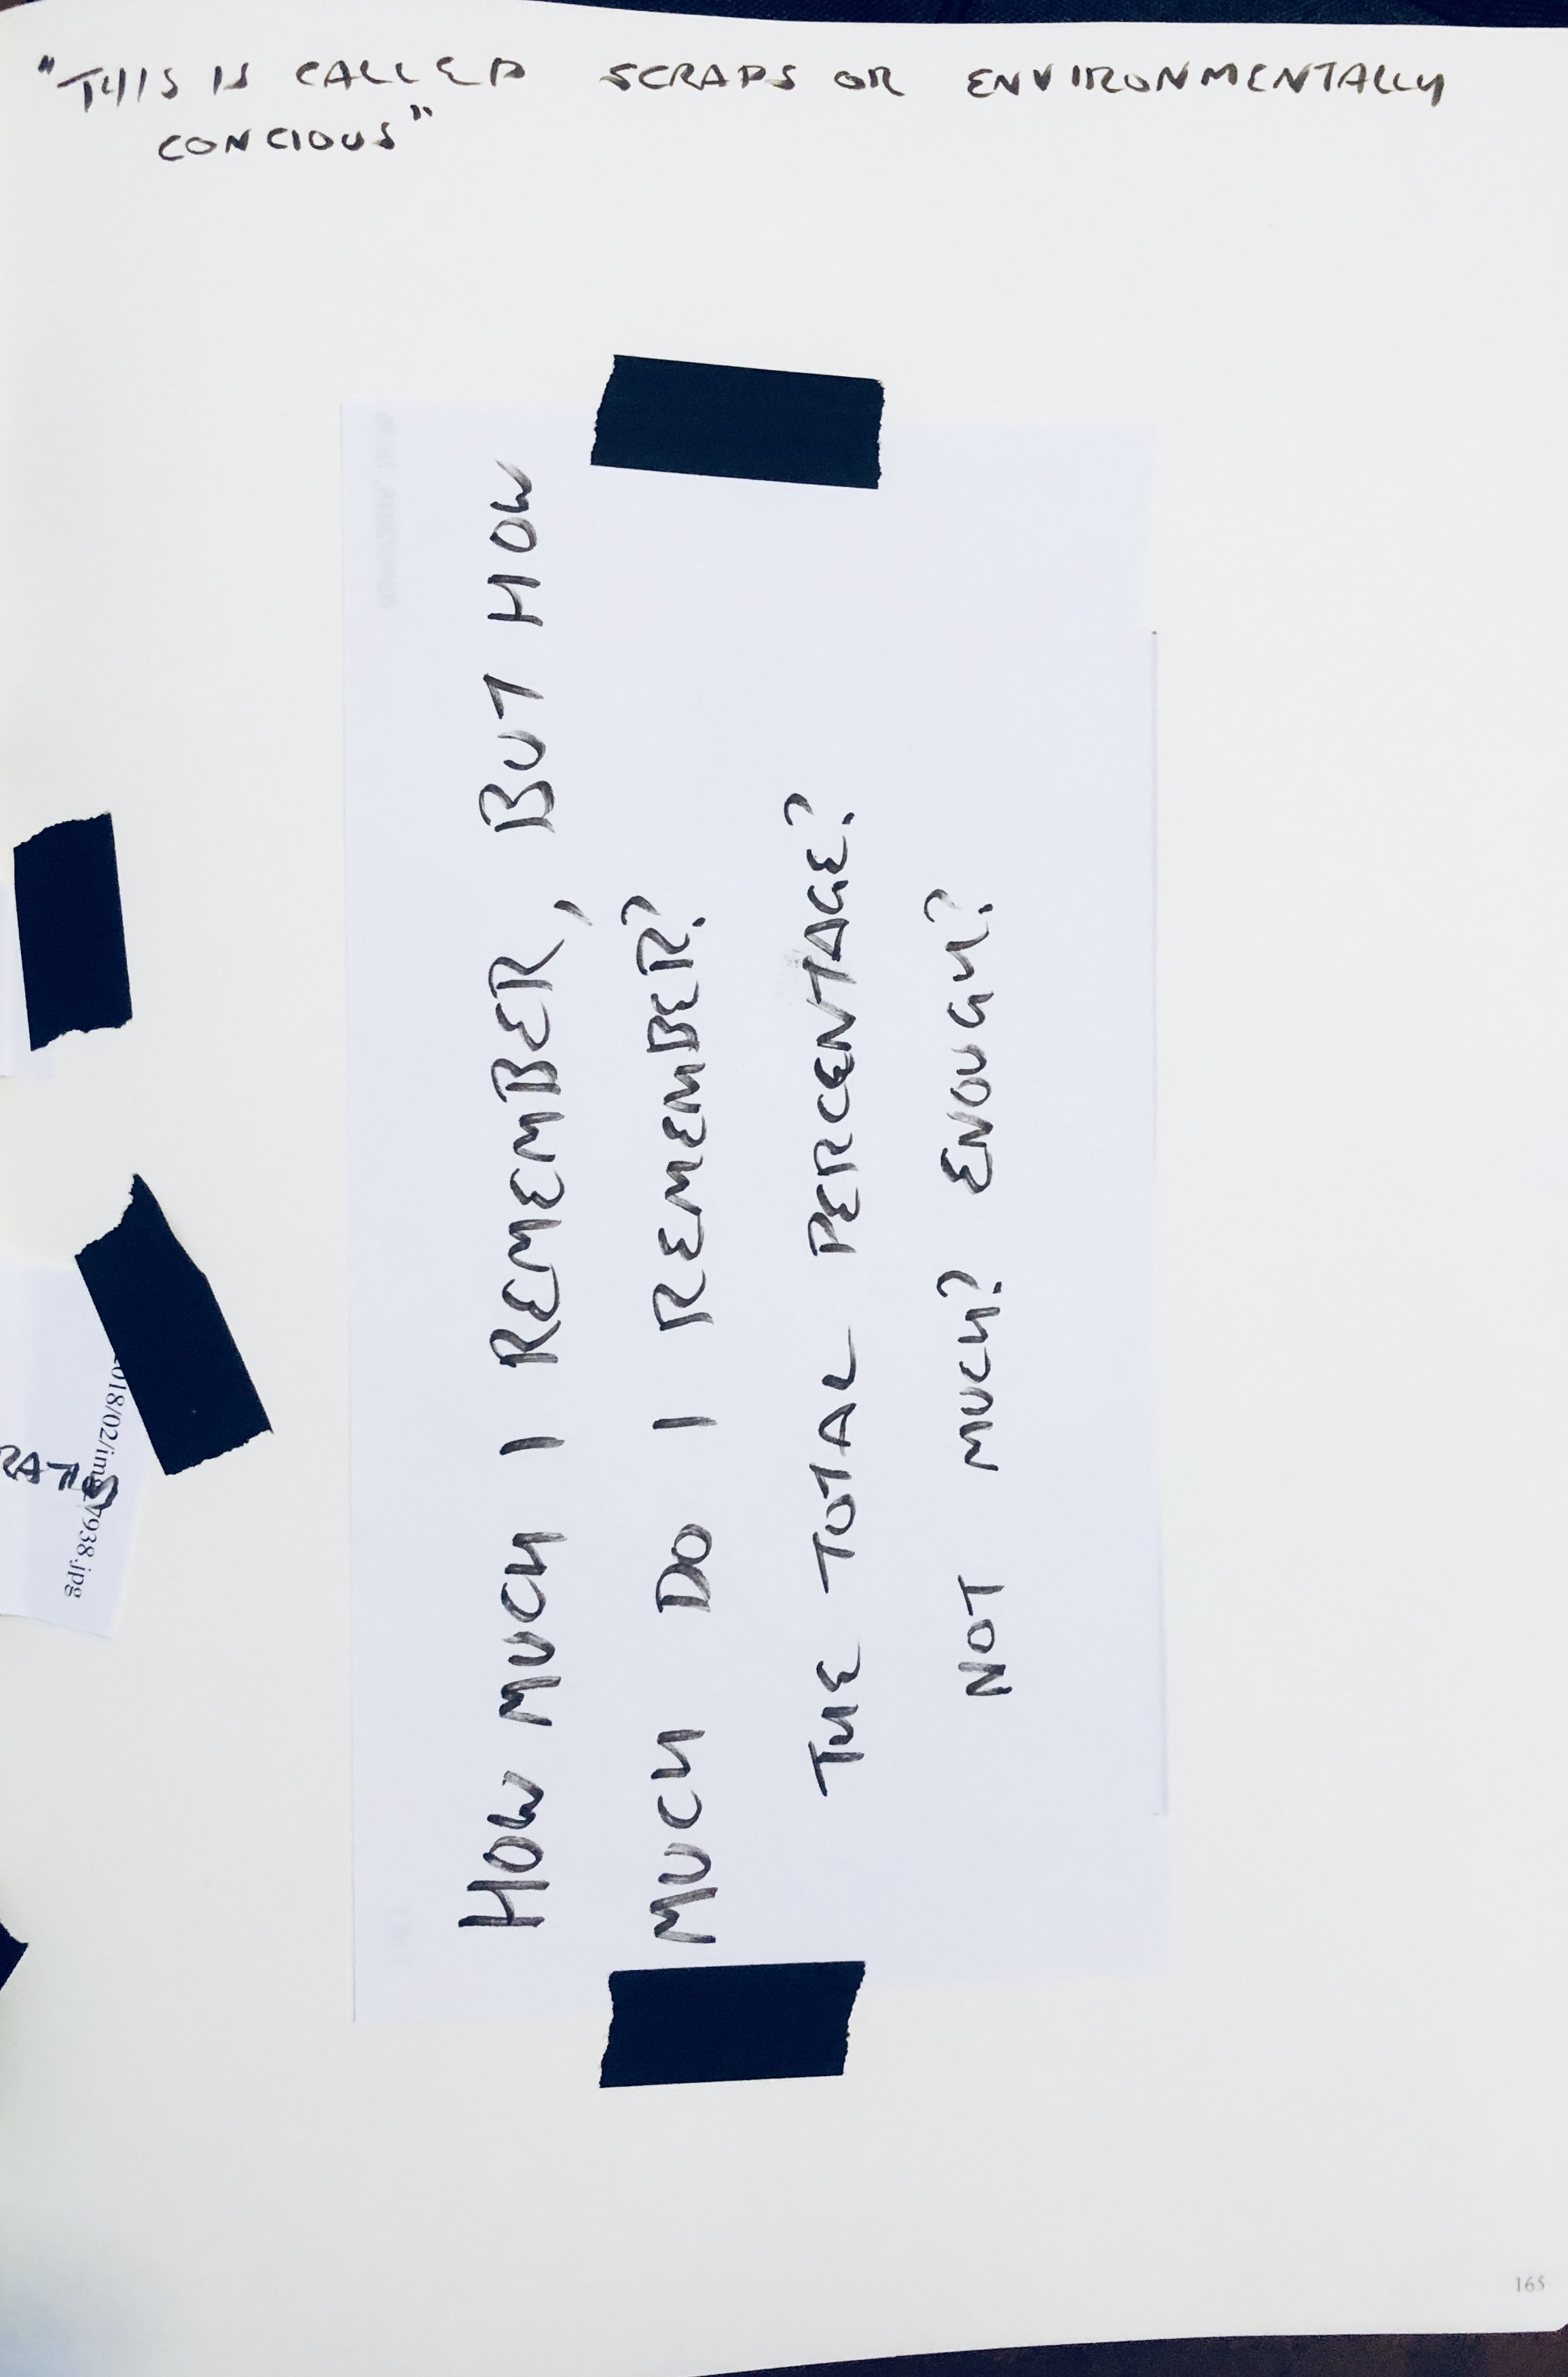 "THIS IS CALLED SCRAPS OR ENVIRONMENTALLY
CONCIOUS"
HOW MUCH I REMEMBER, BUT HOW
MUCH DO I REMEMBER?
THE TOTAL PERCENTAGE?
NOT MUCH? ENOUGH?
018/02/img_7938.jpg
165